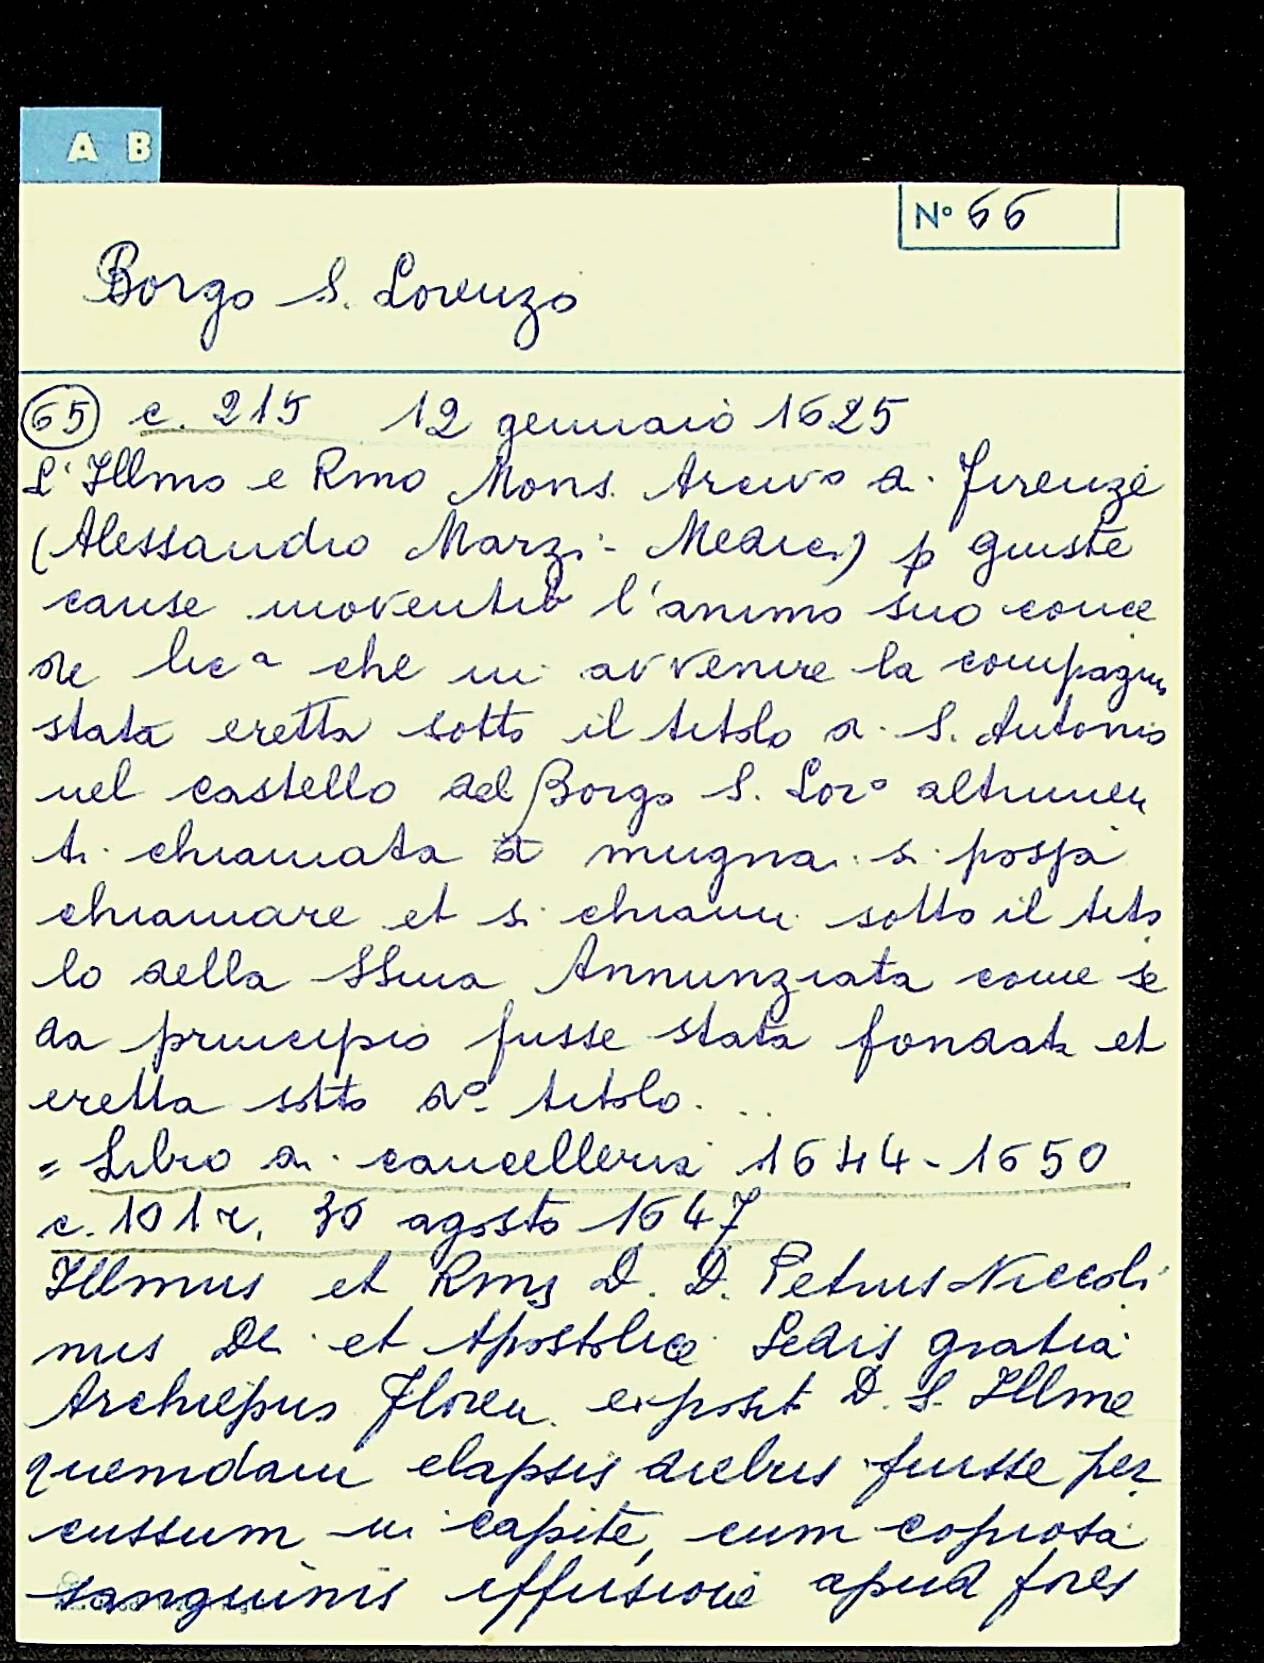 A B
Nº 66
Borgo S. Lorenzo
65 c. 215 12 gennaio 1625
L'Illmo e Rmo Mons. Arcivo di Firenze
(Alessandro Marzi-Medici) p giuste
cause moventib l'animo suo conce
de lica che in avvenire la compagnia
stata eretta sotto il titolo di S. Antonio
nel castello del Borgo S. Loro altrimen
ti chiamata di mugnai si possa
chiamare et si chiami sotto il tito
lo della SSma Annunziata come se
da principio fusse stata fondata et
eretta sotto do titolo...
= Libro di cancelleria 1644-1650
c. 101 r. 30 agosto 1647
Illmus et Rms D. D. Petrus Niccoli
nus Dei et Apostolice Sedis gratia
Archiepus Floren. exposit D. S. Illme
quemdam elapsis diebus fuisse per
cussum in capite, cum copiosa
sanguinis effusione apud fores